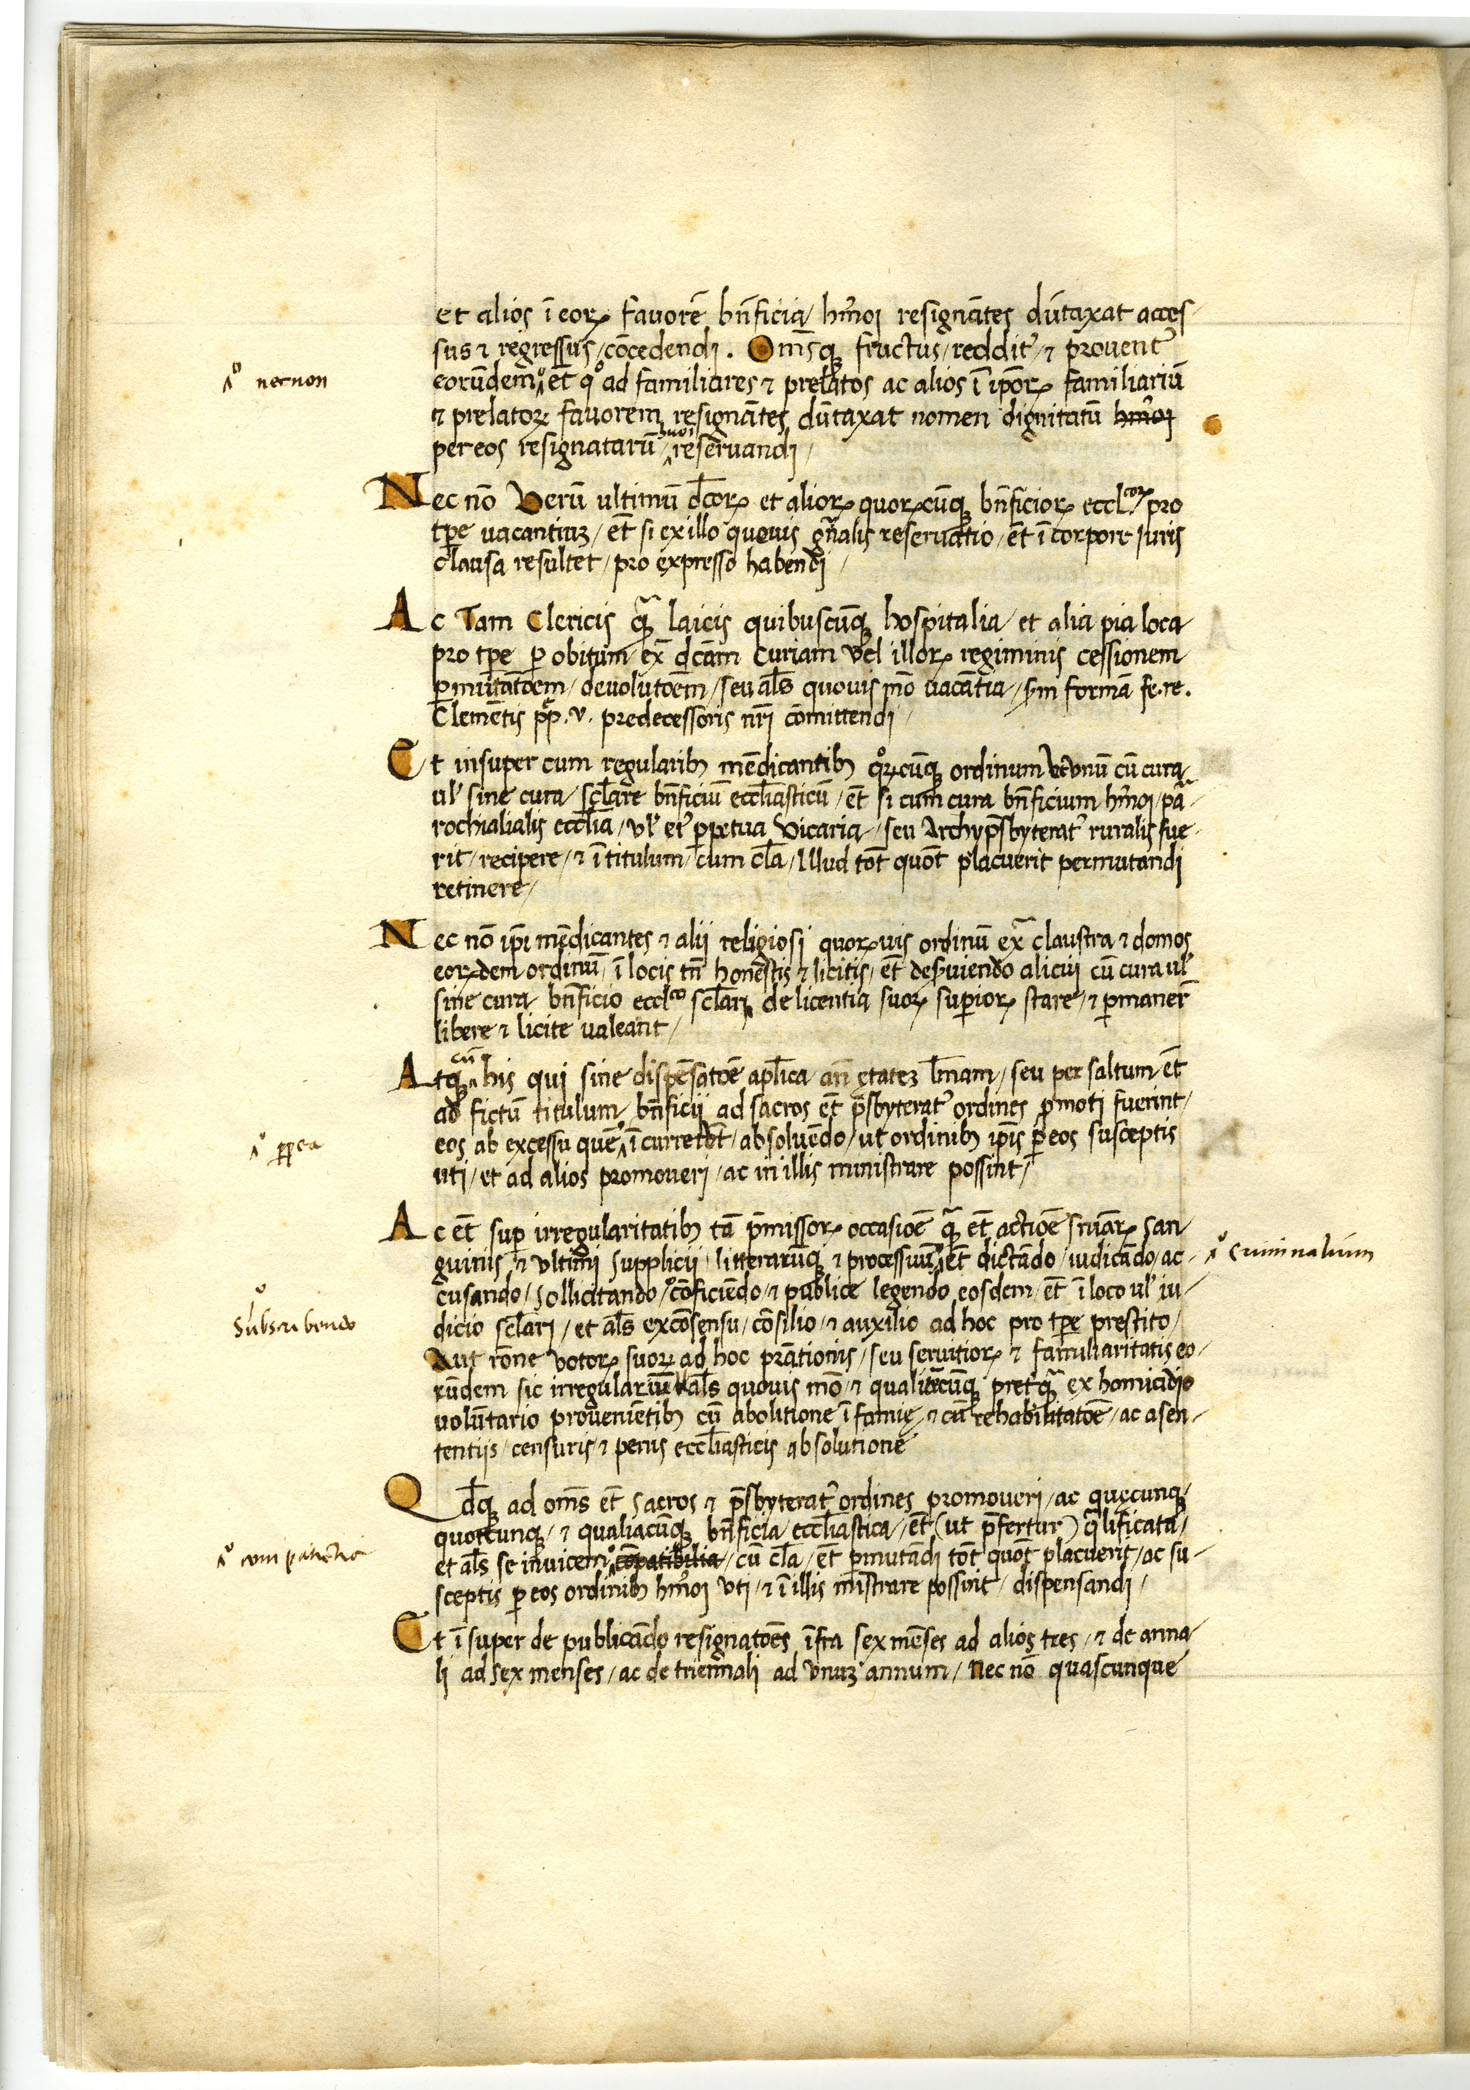 et alios ī eorꝝ fauorē bn̄ficia / hm̄oi resignātes dūtaxat acces-
sus ⁊ regressus / cōcedendi . Om̄sqꝫ fructus / reddit᷒ / ⁊ prouent᷒
necnon
eorūdem / et̄ qͦ ad familiares ⁊ prelatos ac alios ī ip̄orꝝ familiariū
⁊ prelatorꝝ fauorem resignātes dūtaxat nomen dignitatū hm̄oi
per eos resignatarū hmōi reseruandi /
Nec nō Verū ultimū dc̄orꝝ et aliorꝝ quorꝝcūqꝫ bn̄ficiorꝝ eccl͞coꝝ pro
tp̄e uacantiuꝫ / et̄ si ex illo quouis gn̄alis reseruatio / et̄ ī corpore iuris
clausa resultet / pro expresso habendi /
Ac Tam Clericis qꝫ̄ laicis quibuscūqꝫ hospitalia / et alia pia loca
pro tp̄e ꝑ obitum / ex̄ dc̄am Curiam vel illorꝝ regiminis cessionem
ꝑmutatōem / deuolutōem / seu al̄s quouis mō uacātia / sm̄ formā fe. re.
Clemētis pp̄. v. predecessoris nr̄i cōmittendi /
Et insuper cum regularibꝫ mēdicantibꝫ qͦrꝝcūqꝫ ordinum vt vnū cū cura
ul̄ sine cura / scl̄are bn̄ficiū eccl̄iasticū / et̄ si cum cura bn̄ficium hm̄oi / pa-
rochialialis eccl̄ia / vl̄ ei᷒ ꝑpetua Vicaria / seu Archyp̄sbyterat᷒ ruralis fue-
rit / recipere / ⁊ ī titulum / cum cl̄a / Illud tot̄ quot̄ placuerit permutandi
retinere /
Nec nō ip̄i mēdicantes ⁊ alii religiosi quorꝝuis ordinū ex̄ claustra ⁊ domos
eorꝝdem ordinū / ī locis tn̄ honēstis ⁊ licitis / et̄ deẜuiendo alicui cū cura ul̄
sine cura bn̄ficio eccl͞co scl̄ari, de licentia suorꝝ suꝑiorꝝ stare / ⁊ ꝑmaner̄
libere ⁊ licite ualeant /
Atqꝫ cū his qui sine dispēsatōe ap̄lica an̄ ętateꝫ l̄mam / seu per saltum et̄
ad fictū titulum bn̄ficii ad sacros et̄ p̄sbyterat᷒ ordines ꝓmoti fuerint /
ꝓpea
eos ab excessu quē ī currerēt / absoluēdo / ut ordinibꝫ ip̄is ꝑ eos susceptis
uti / et ad alios promoueri / ac in illis ministrare possint /
Ac et̄ suꝑ irregularitatibꝫ tā p̄missorꝝ occasiōe qꝫ̄ et̄ actiōe sn̄iarꝝ san-
guinis ⁊ vltimi supplicii litterarūqꝫ ⁊ processuū et̄ dictādo / iudicādo / ac-
Criminalium
cusando / sollicitando / cōficiēdo / ⁊ publice legendo eosdem / et̄ ī loco ul̄ iu-
Subscribendo
dicio scl̄ari / et al̄s ex cōsensu / cōsilio / ⁊ auxilio ad hoc pro tp̄e prestito /
Aut rōne votorꝝ suorꝝ ad hoc prātionis / seu seruitiorꝝ ⁊ familiaritatis eo-
rūdem sic irregulariū al̄s quouis mō / ⁊ qualitercūqꝫ pretqꝫ̄ ex homicidio
uolūtario prouenientibꝫ cū abolitione ī famię / ⁊ cū rehabilitatōe / ac a sen-
tentiis / censuris ⁊ penis eccl̄iasticis absolutione
Qd̄qꝫ ad om̄s et̄ sacros ⁊ p̄sbyterat᷒ ordines promoueri / ac quęcunqꝫ /
quotcunqꝫ / ⁊ qualiacūqꝫ bn̄ficia / eccl̄iastica / et̄ (ut p̄fertur) qᷓlificata /
compatientia
et al̄s se inuicem cōpatibilia / cū cl̄a / et̄ ꝑmutādi tot̄ quot̄ placuerit / ac su-
sceptis ꝑ eos ordinibꝫ hm̄oi vti / ⁊ ī illis mīstrare possint / dispensandi /
Et ī super de publicādo resignatōes īfra sex mēses ad alios tres / ⁊ de anna-
li ad sex menses / ac de triennali ad vnuꝫ annum / Nec nō quascunque